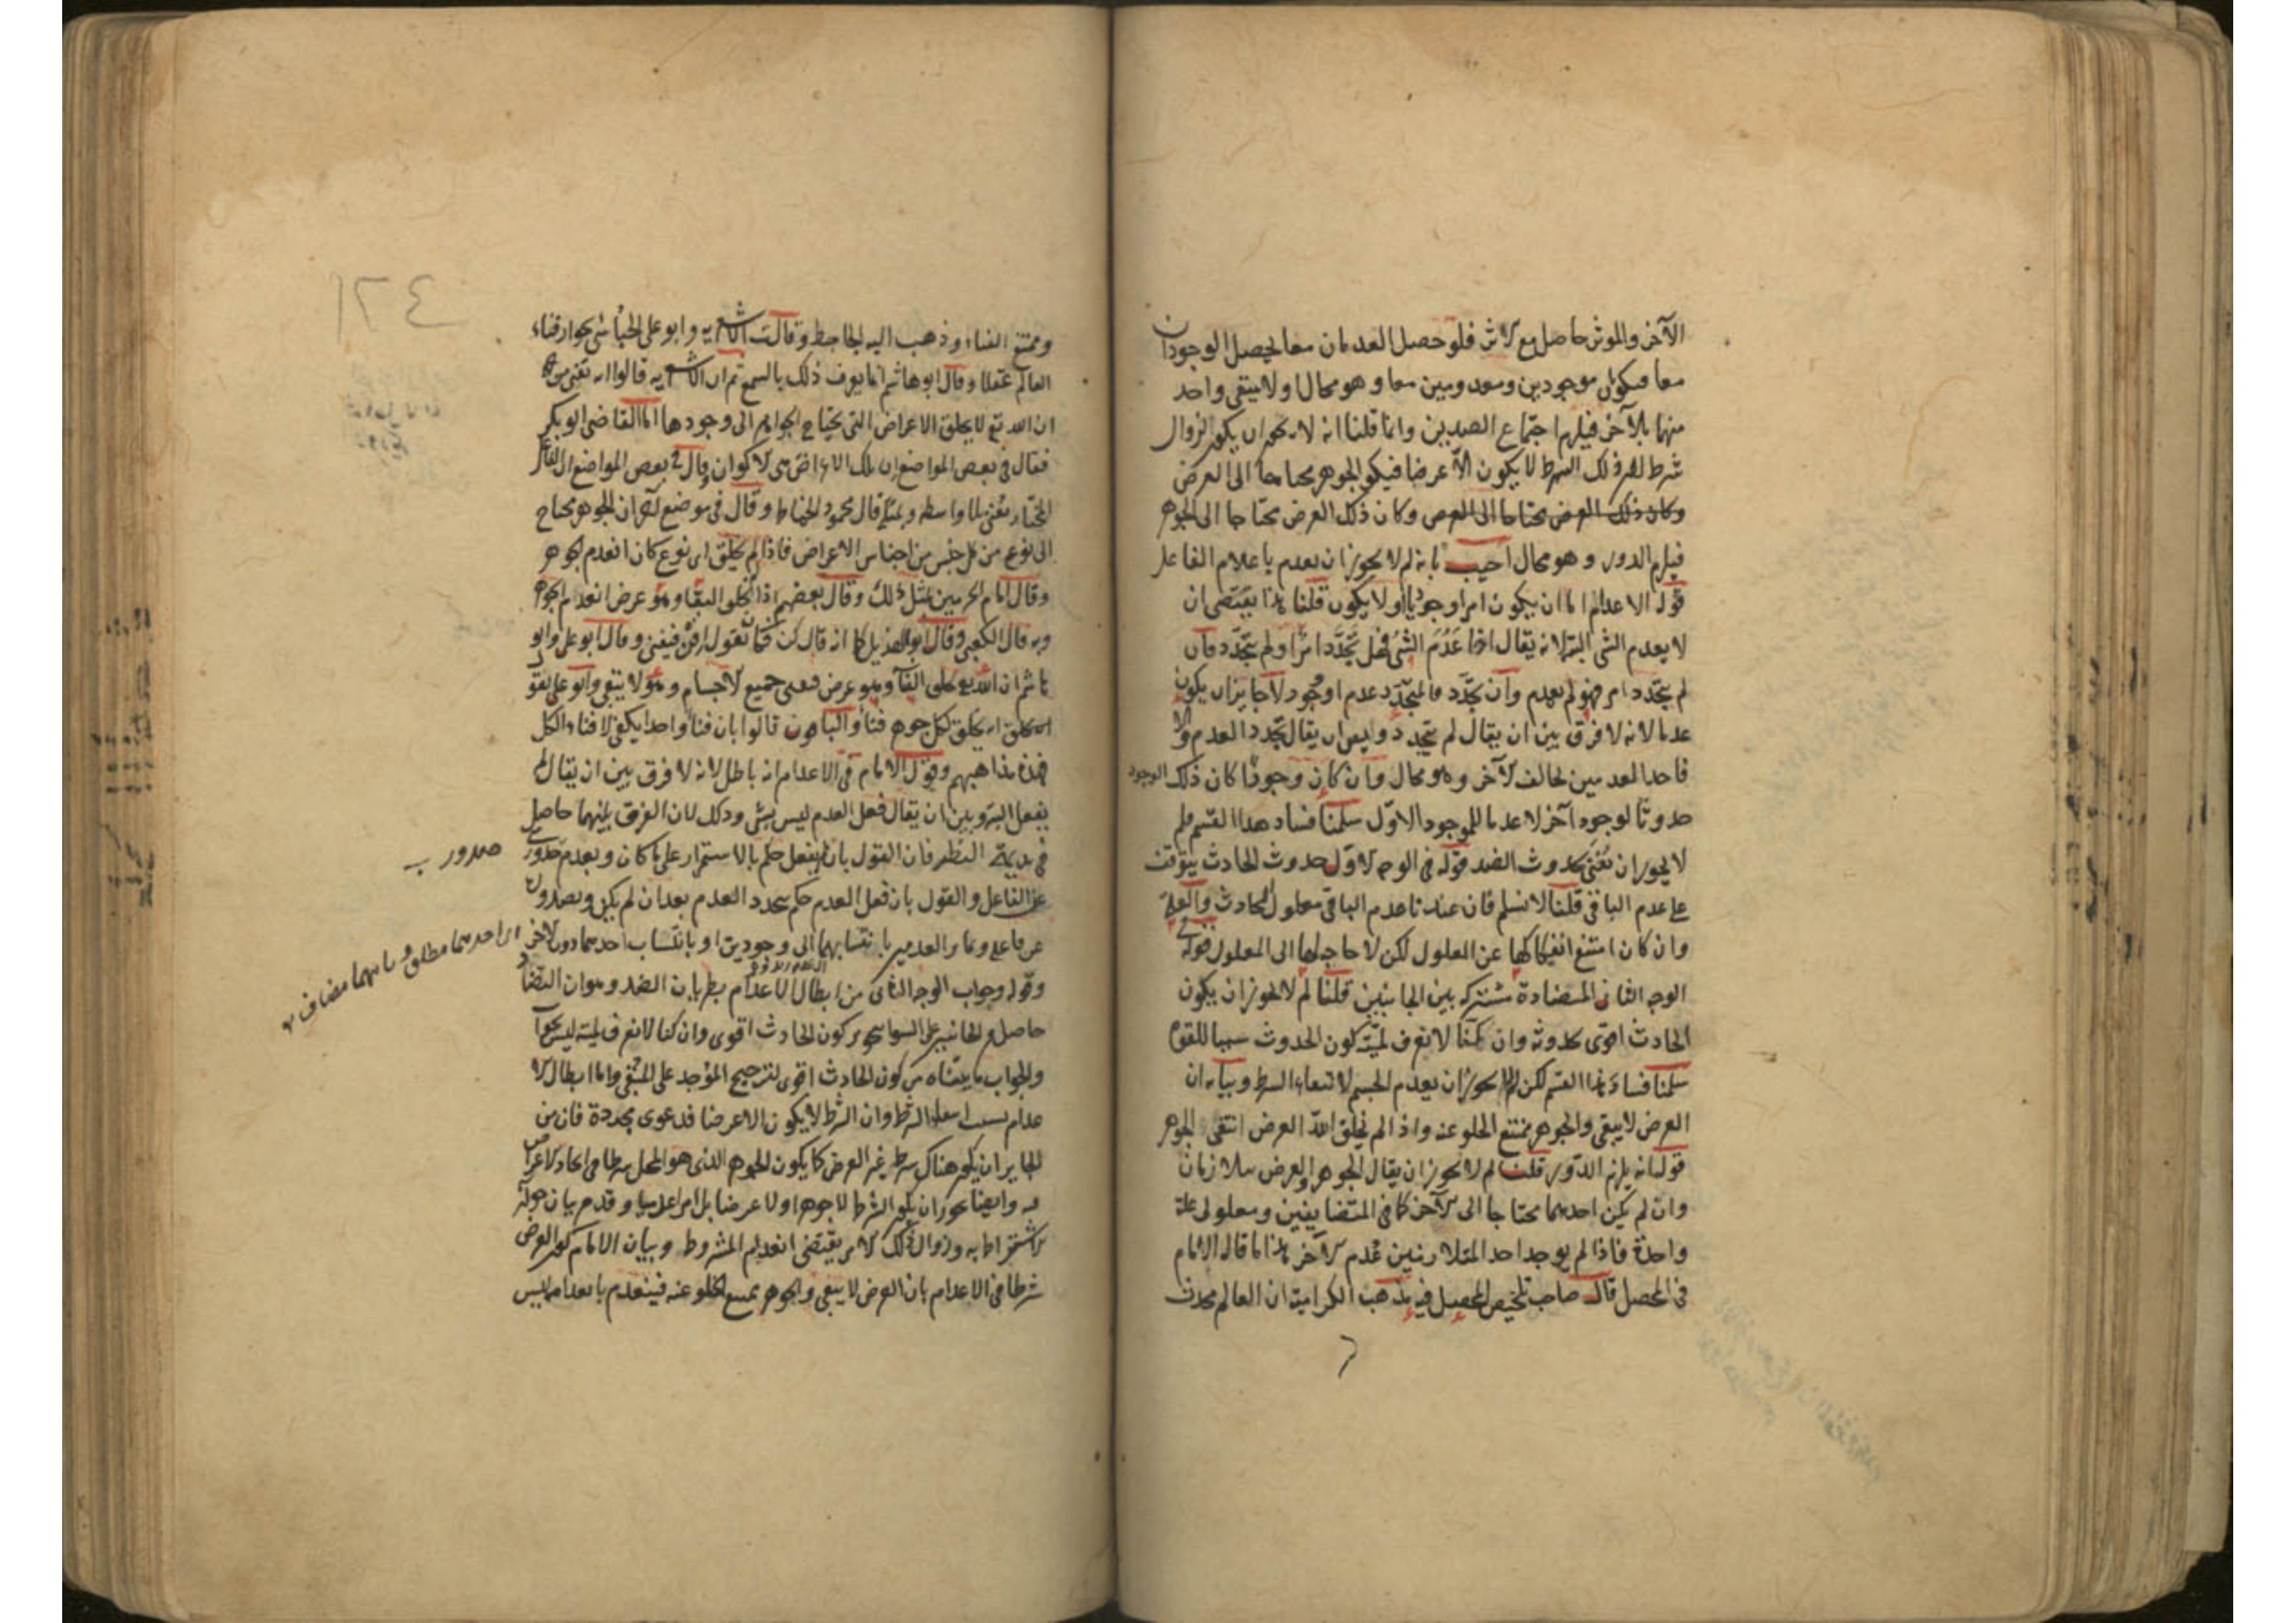 الآخر والموثر حاصل مع الاثر فلو حصل العدمان معا لحصل الوجودان
معا فيكونان موجودين ومعدومين معا وهو محال او لا ينتفى واحد
منهما بالآخر فيلزم اجتماع الضدين وانما قلنا انه لا يجوز ان يكون لزوال
شرط لان ذلك الشرط لا يكون الا عرضا فيكون الجوهر محتاجا الى العرض
وكان ذلك العرض محتاجا الى العرض وكان ذلك العرض محتاجا الى الجوهر
فيلزم الدور وهو محال اجيب بانه لم لا يجوز ان يعدم باعدام الفاعل
قوله الاعدام اما ان يكون امرا وجوديا او لا يكون قلنا هذا يقتضى ان
لا يعدم الشى البتة لانه يقال اذا عدم الشى فهل تجدد امر او لم يتجدد فان
لم يتجدد امر فهو لم يعدم وان تجدد فالمتجدد عدم او وجود لا جايز ان يكون
عدما لانه لا فرق بين ان يقال لم يتجدد وبين ان يقال تجدد العدم والا
فاحد العدمين مخالف الآخر وهو محال وان كان وجودا كان ذلك الوجود
حدوثا لوجود آخر لا عدما للموجود الاول سلمنا فساد هذا القسم فلم
لا يجوز ان يفنى بحدوث الضد قوله فى الوجه الاول حدوث الحادث يتوقف
على عدم الباقى قلنا لا نسلم فان عندنا عدم الباقى معلول الحادث والعلة
وان كان امتنع انفكاكها عن المعلول لكن لا حاجة لها الى المعلول قوله فى
الوجه الثانى المضادة مشتركة بين الجانبين قلنا لم لا يجوز ان يكون
الحادث اقوى لحدوثه وان كنا لا نعرف لمية كون الحدوث سببا للقوة
سلمنا فساد هذا القسم لكن لم لا يجوز ان يعدم الجسم لانتفاء الشرط وبيانه ان
العرض لا يبقى والجوهر يمتنع الخلو عنه واذا لم يخلق الله العرض انتفى الجوهر
قوله بانه يلزم الدور قلنا لم لا يجوز ان يقال الجوهر والعرض متلازمان
وان لم يكن احدهما محتاجا الى الآخر كما فى المتضايفين ومعلولى علة
واحدة فاذا لم يوجد احد المتلازمين عدم الآخر هذا ما قاله الامام
فى المحصل قال صاحب تلخيص المحصل فيه مذهب الكرامية ان العالم محدث
١٢٤
وممتنع الفناء وذهب اليه الجاحظ وقالت الاشعرية وابو على الجبائى بجواز فناء
العالم عقلا وقال ابو هاشم انما يعرف ذلك بالسمع ثم ان الاشعرية قالوا انه يفنى من جهة
ان الله تع لا يخلق الاعراض التى يحتاج الجواهر الى وجودها اما القاضى ابو بكر
فقال فى بعض المواضع ان تلك الاعراض هى الاكوان وقال فى بعض المواضع ان الفاعل
المختار يفنى بلا واسطه وبمثله قال محمود الخياط وقال فى موضع آخر ان الجوهر محتاج
الى نوع من كل جنس من اجناس الاعراض فاذا لم يخلق اى نوع كان انعدم الجوهر
وقال امام الحرمين بمثل ذلك وقال بعضهم اذا لم يخلق البقاء وهو عرض انعدم الجوهر
وبه قال الكعبى وقال ابو الهذيل كما انه قال كن فكان تقول افن فيفنى وقال ابو على وابو
هاشم ان الله تع يخلق الفناء وهو عرض فيفنى جميع الاجسام وهو لا يبقى وابو على يقول
انه يخلق لكل جوهر فناء والباقون قالوا بان فناء واحدا يكفى لافناء الكل
فهذه مذاهبهم وقول الامام فى الاعدام انه باطل لانه لا فرق بين ان يقال لم
يفعل البتة وبين ان يقال فعل العدم ليس بشى وذلك لان الفرق بينهما حاصل
فى بديهة النظر فان القول بان لم يفعل حكم بالاستمرار على ما كان وبعدم صدور شى
عن الفاعل والقول بان فعل العدم حكم بتجدد العدم بعد ان لم يكن وبصدوره
عن فاعله وتمايز العدمين بانتسابهما الى وجودين او بانتساب احدهما دون الآخر
وقوله وجواب الوجه الثانى من ابطال الاعدام بطريان الضد وهو ان التضاد
حاصل من الجانبين على السوا يجوز كون الحادث اقوى وان كنا لا نعرف لميته ليس بجواب
والجواب ما بيناه من كون الحادث اقوى لترجيح الموجد على المبقى واما ابطال الا
عدام بسبب انتفاء الشرط وان الشرط لا يكون الا عرضا فدعوى مجردة فان من
الجايز ان يكون هناك شرط غير العرض كما يكون الجوهر الذى هو المحل شرطا فى ايجاد الاعراض
فيه وايضا يجوز ان يكون الشرط لا جوهرا ولا عرضا بل امرا عدميا وقد مر بيان جواز
الاشتراط به وزوال ذلك الامر يقتضى انعدام المشروط وبيان الامام كون العرض
شرطا فى الاعدام بان العرض لا يبقى والجوهر يمتنع الخلو عنه فينعدم بانعدامه ليس
صدور
اى احدهما مطلق وثانيهما مضاف